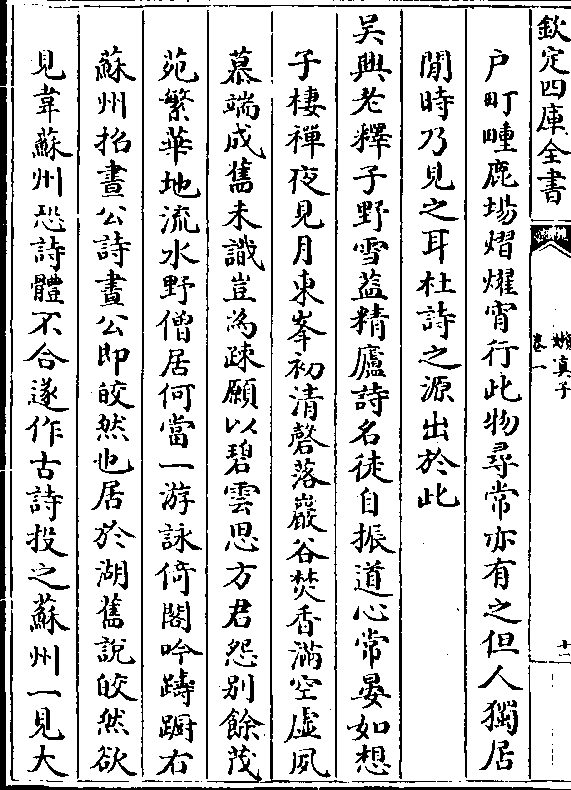 欽定四庫全書
懶真子
卷一
十二
户町畽鹿場熠燿宵行此物尋常亦有之但人獨居
閒時乃見之耳杜詩之源出於此
吳興老釋子野雪蓋精廬詩名徒自振道心常晏如想
子棲禪夜見月東峯初清磬落巖谷焚香滿空虚夙
慕端成舊未識豈為疎願以碧雲思方君怨别餘茂
苑繁華地流水野僧居何當一游詠倚閣吟躊躕右
蘇州招晝公詩晝公即皎然也居於湖舊說皎然欲
見韋蘇州恐詩體不合遂作古詩投之蘇州一見大